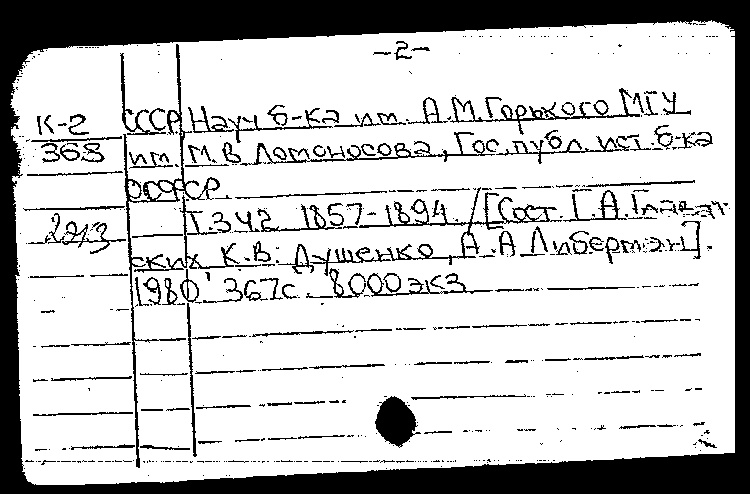 -2-
К-2 СССР, Науч б-ка им. А.М.Горького МГУ
368 им. М.В Ломоносова, Гос. публ. ист. б-ка
РСФСР.
Т.3 Ч2 1857-1894. /[Сост Г.А.Глават
ских К.В. Душенко, А.А Либерман].
1980 367с. 8000экз